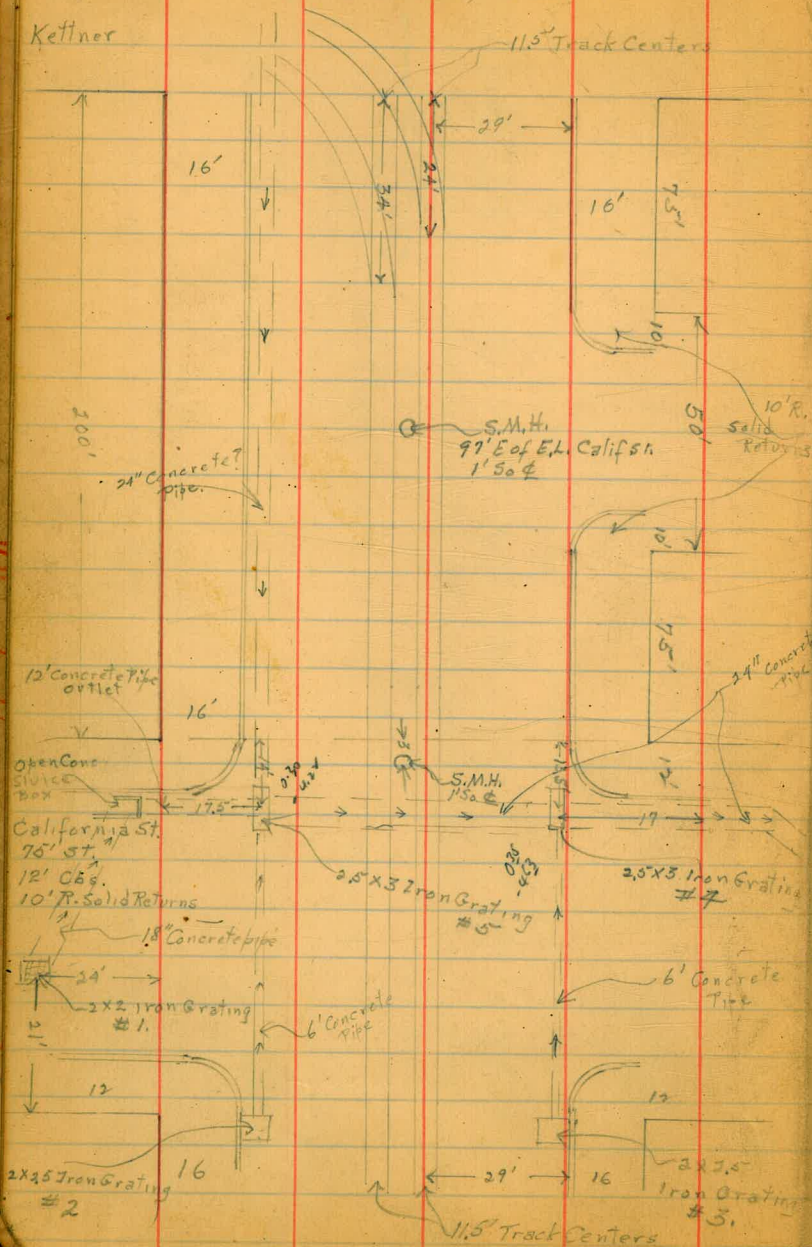 Kettner
11.5' Track Centers
29'
16'
34'
24'
16'
75'
10'
200'
50'
10' R.
Solid
Returns
S.M.H.
97' E of E.L. Calif St.
1' So ₵
24" Concrete?
Pipe.
10'
75'
24" Concrete
Pipe
12' Concrete Pipe
outlet
16'
12'
Open Conc
Sluice
Box
17.5
S.M.H.
1' So. ₵
17
California St.
75' St.
12' Cbs.
10' R. Solid Returns
2.5 X 3 Iron Grating
#5
2.5 X 3 Iron Grating
#4
18" Concrete pipe
24'
2 X 2 Iron Grating
#1.
21'
6' Concrete
Pipe
6' Concrete
Pipe
12
12
2 X 2.5 Iron Grating
#2
16
29'
16
Iron Grating
#3.
11.5' Track Centers